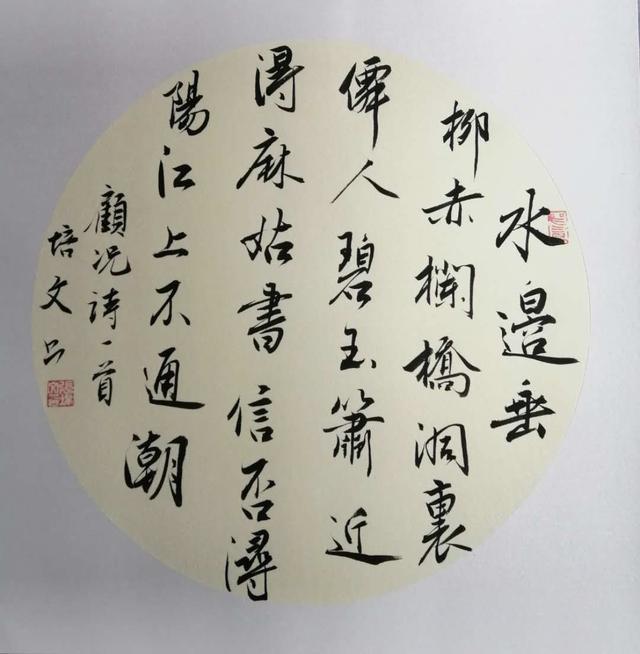 水邊垂
柳赤欄橋洞裏
僊人碧玉簫近
得麻姑書信否潯
陽江上不通潮
顧况詩一首
培文书